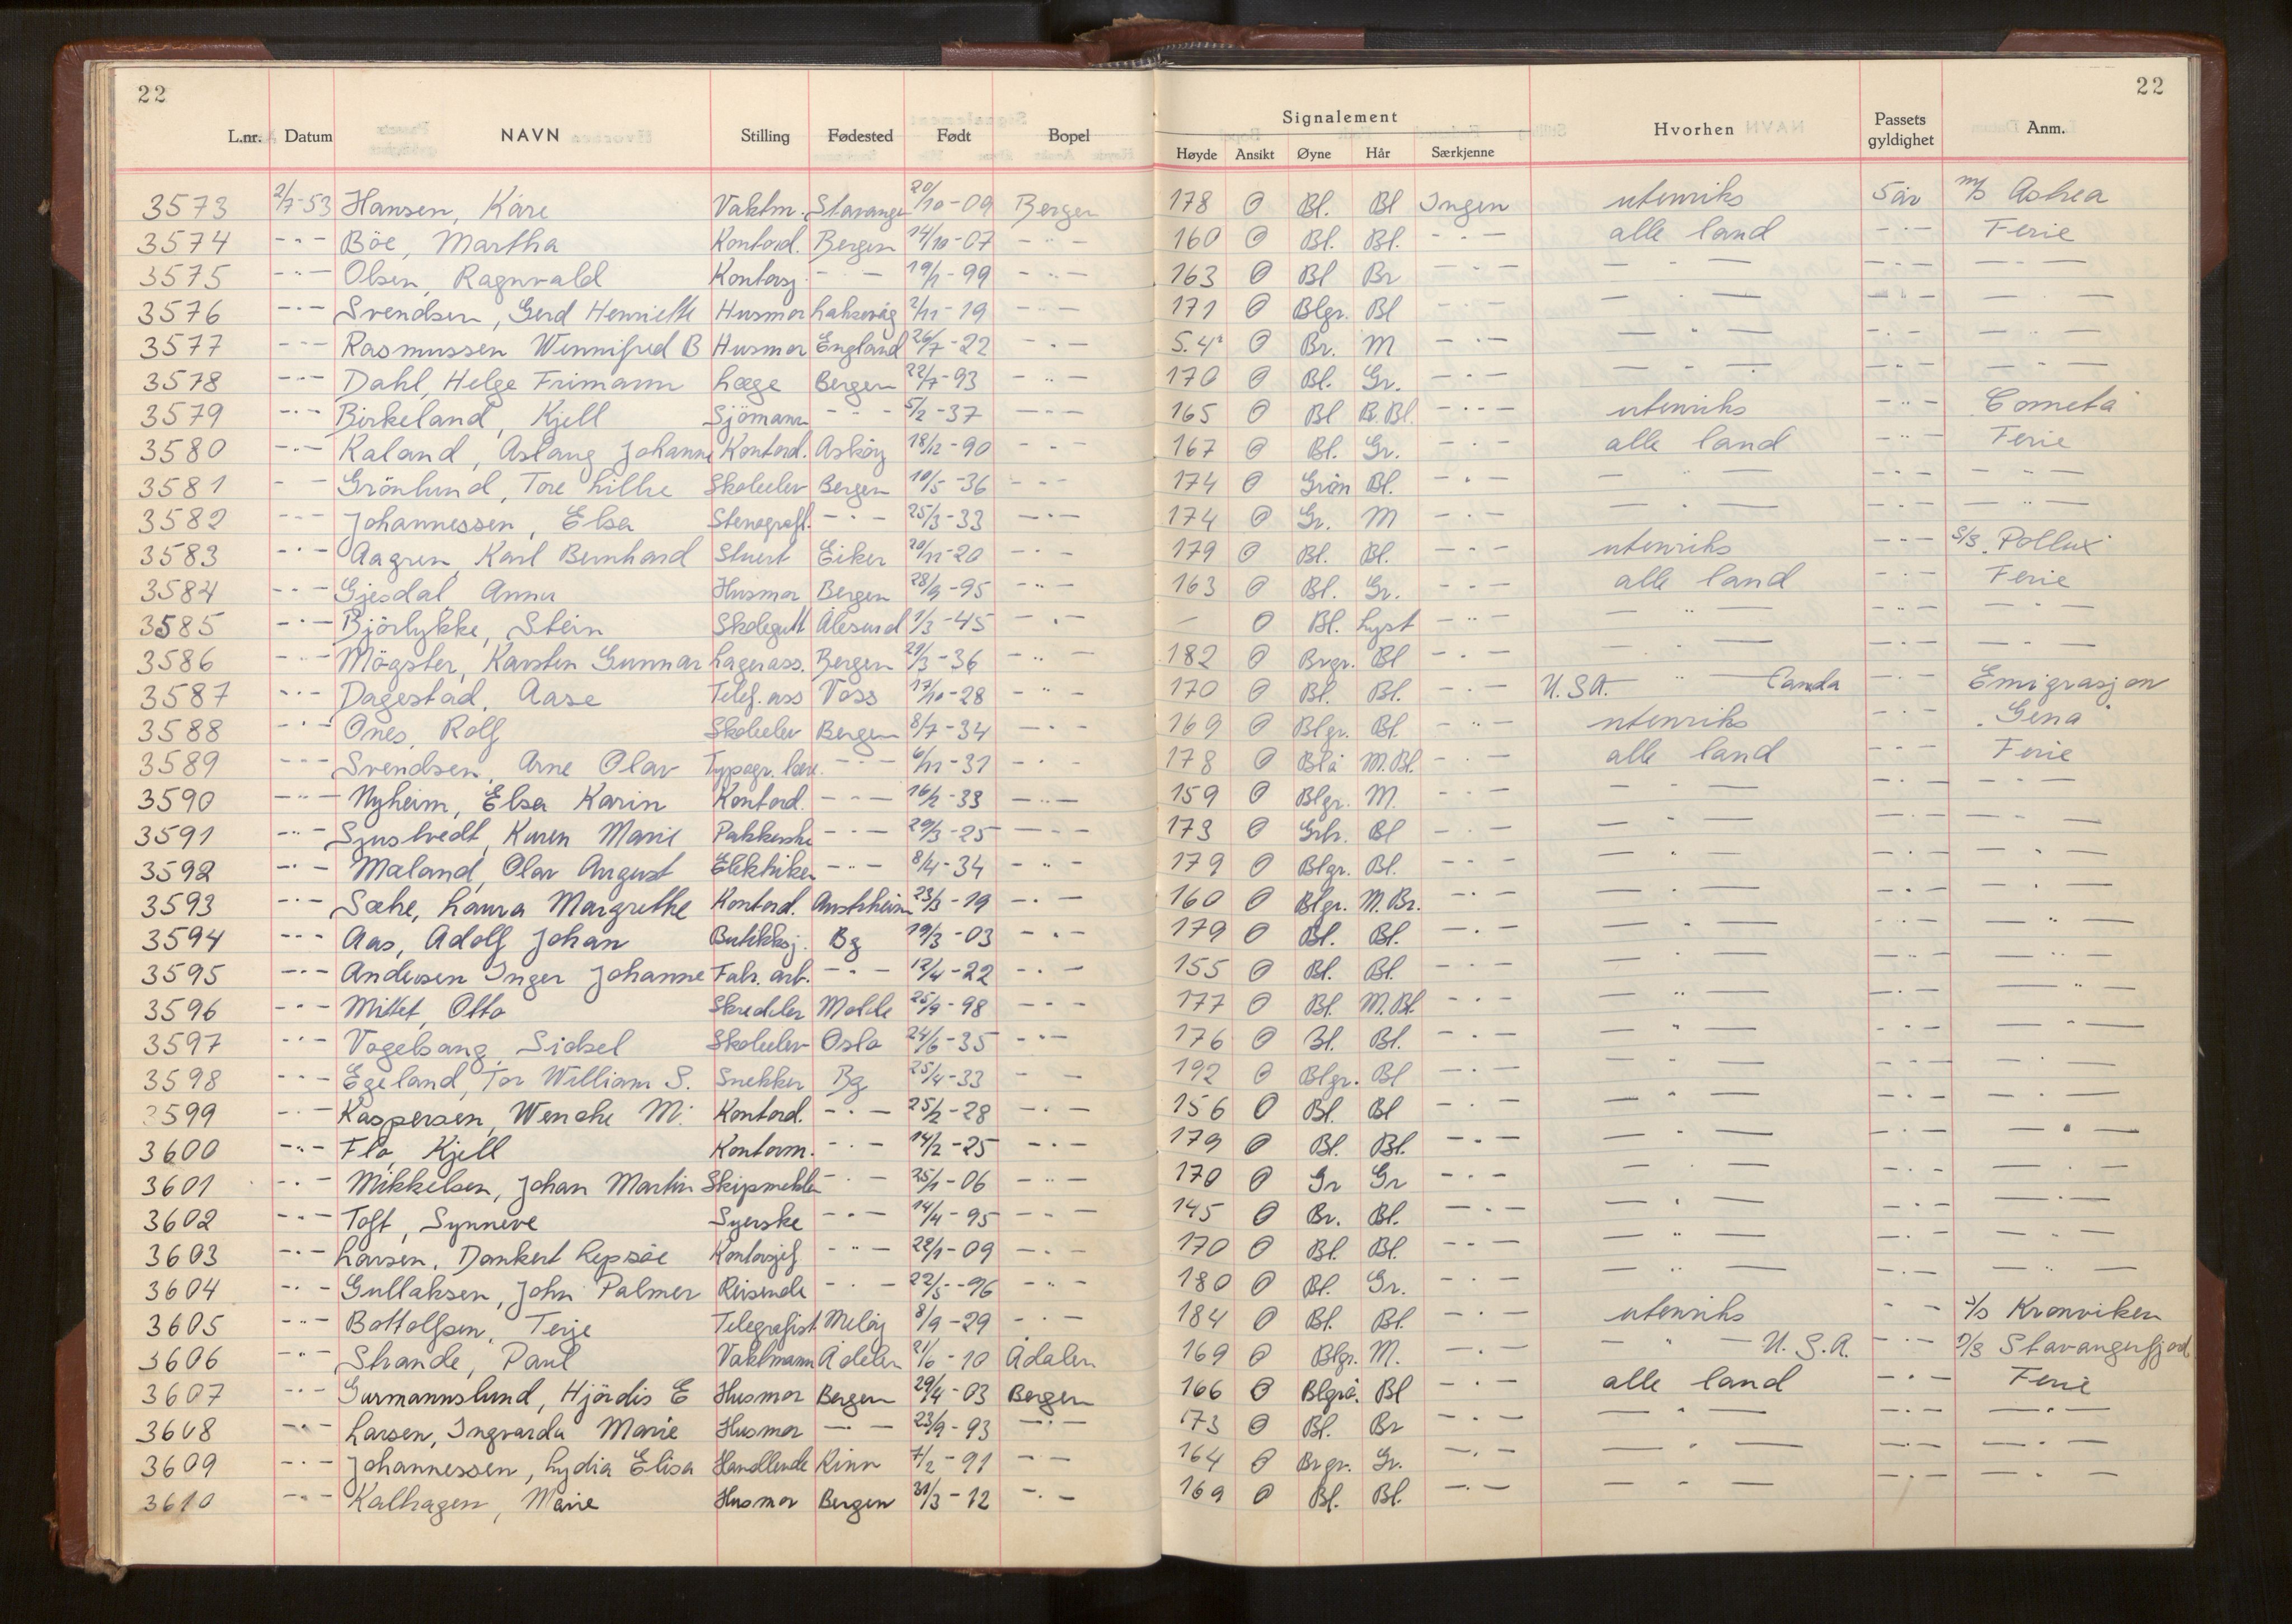 22
22
L.nr. Datum NAVN Stilling Fødested Født Bopel Signalement Høyde Ansikt Øyne Hår Særkjenne Hvorhen Passets gyldighet Anm.
3573 2/7-53 Hansen, Kåre Vaktm. Stavanger 20/10-09 Bergen 178 O Bl. Bl Ingen utenriks 5 år m/s Askea
3574 -"- Böe, Martha Kontord. Bergen 14/10-07 -"- 160 O Bl. Bl. -"- alle land -"- Ferie
3575 -"- Olsen, Ragnvald Kontorsj. -"- 19/1-99 -"- 163 O Bl Br -"- -"- -"- -"-
3576 -"- Svendsen, Gerd Henriette Husmor Laksevåg 2/11-19 -"- 171 O Blgr. Bl -"- -"- -"- -"-
3577 -"- Rasmussen Wennifred B Husmor England 26/7-22 -"- 5.4" O Br. M -"- -"- -"- -"-
3578 -"- Dahl, Helge Frimann Læge Bergen 22/7-93 -"- 170 O Bl. Gr. -"- -"- -"- -"-
3579 -"- Birkeland, Kjell Sjömann -"- 5/2-37 -"- 165 O Bl B.Bl. -"- utenriks -"- "Cometa"
3580 -"- Kaland, Aslaug Johanne Kontord. Asköy 18/12-90 -"- 167 O Bl. Gr. -"- alle land -"- Ferie
3581 -"- Grönlund, Tore Lilke Skoleelev Bergen 10/5-36 -"- 174 O Grön Bl. -"- -"- -"- -"-
3582 -"- Johannessen, Elsa Stenograf. -"- 25/3-33 -"- 174 O Gr. M -"- -"- -"- -"-
3583 -"- Aagren, Karl Bernhard Stuert Eiker 20/11-20 -"- 179 O Bl. Bl. -"- utenriks -"- S/S "Pollux"
3584 -"- Gjesdal Anna Husmor Bergen 28/9-95 -"- 163 O Bl. Gr. -"- alle land -"- Ferie
3585 -"- Björlykke, Stein Skolegutt Ålesund 1/3-45 -"- - O Bl. Lyst -"- -"- -"- -"-
3586 -"- Mögster, Karsten Gunnar Lagerass. Bergen 29/3-36 -"- 182 O Brgr. Bl -"- -"- -"- -"-
3587 -"- Dagestad, Aase Telef.ass Voss 17/10-28 -"- 170 O Bl. Bl. -"- U.S.A. -"- Canda -"- Emigrasjon
3588 -"- Ones, Rolf Skoleelev Bergen 8/7-34 -"- 169 O Blgr. Bl. -"- utenriks -"- "Gena"
3589 -"- Svendsen, Arne Olav Typogr. lær. -"- 6/11-31 -"- 178 O Blå M.Bl. -"- alle land -"- Ferie
3590 -"- Nyheim, Elsa Karin Kontord. -"- 16/2-33 -"- 159 O Blgr. M. -"- -"- -"- -"-
3591 -"- Sjustvedt, Karen Marie Pakkerske -"- 29/3-25 -"- 173 O Grb. Bl -"- -"- -"- -"-
3592 -"- Maland, Olav August Elektriker -"- 8/4-34 -"- 179 O Blgr. Bl. -"- -"- -"- -"-
3593 -"- Sæhe, Laura Margrethe Kontord. Austrheim 23/3-19 -"- 160 O Blgr. M.Br. -"- -"- -"- -"-
3594 -"- Aas, Adolf Johan Butikksj. Bg 19/3-03 -"- 179 O Bl. Bl. -"- -"- -"- -"-
3595 -"- Andersen Inger Johanne Fabr. arb. -"- 12/4-22 -"- 155 O Bl. Bl. -"- -"- -"- -"-
3596 -"- Mittet, Otto Skredder Molde 25/9-98 -"- 177 O Bl. M.Bl. -"- -"- -"- -"-
3597 -"- Vogelsang, Sidsel Skoleelev Oslo 24/6-35 -"- 176 O Bl. Bl. -"- -"- -"- -"-
3598 -"- Egeland, Tor William S. Snekker Bg 25/4-33 -"- 192 O Blgr. Bl -"- -"- -"- -"-
3599 -"- Kaspersen, Wenche M. Kontord. -"- 25/2-28 -"- 156 O Bl. Bl -"- -"- -"- -"-
3600 -"- Flo, Kjell Kontorm. -"- 14/2-25 -"- 179 O Bl. Bl. -"- -"- -"- -"-
3601 -"- Mikkelsen, Johan Martin Skipsmekler -"- 25/1-06 -"- 170 O Gr Gr -"- -"- -"- -"-
3602 -"- Toft, Synneve Syerske -"- 14/4-95 -"- 145 O Br. Bl. -"- -"- -"- -"-
3603 -"- Larsen, Dankert Lepsöe Kontorsjef -"- 28/1-09 -"- 170 O Bl. Bl. -"- -"- -"- -"-
3604 -"- Gullaksen, John Palmer Reisende -"- 22/5-96 -"- 180 O Bl. Gr. -"- -"- -"- -"-
3605 -"- Bottolfsen, Terje Telegrafist Melöy 8/9-29 -"- 184 O Bl. Bl. -"- utenriks -"- S/S Kronviken
3606 -"- Strande, Paul Vaktmann Ådalen 21/6-10 Ådalen 169 O Blgr. M. -"- -"- U.S.A. -"- S/S Stavangerfjord
3607 -"- Gurmannslund, Hjördis E Husmor Bergen 29/4-03 Bergen 166 O Blgrå. Bl -"- alle land -"- Ferie
3608 -"- Larsen, Ingvarda Marie Husmor -"- 23/9-93 -"- 173 O Bl. Br -"- -"- -"- -"-
3609 -"- Johannessen, Lydia Elisa Handlende Kinn 7/2-91 -"- 164 O Brgr. Gr. -"- -"- -"- -"-
3610 -"- Kalhagen, Marie Husmor Bergen 31/3-12 -"- 169 O Bl. Bl. -"- -"- -"- -"-